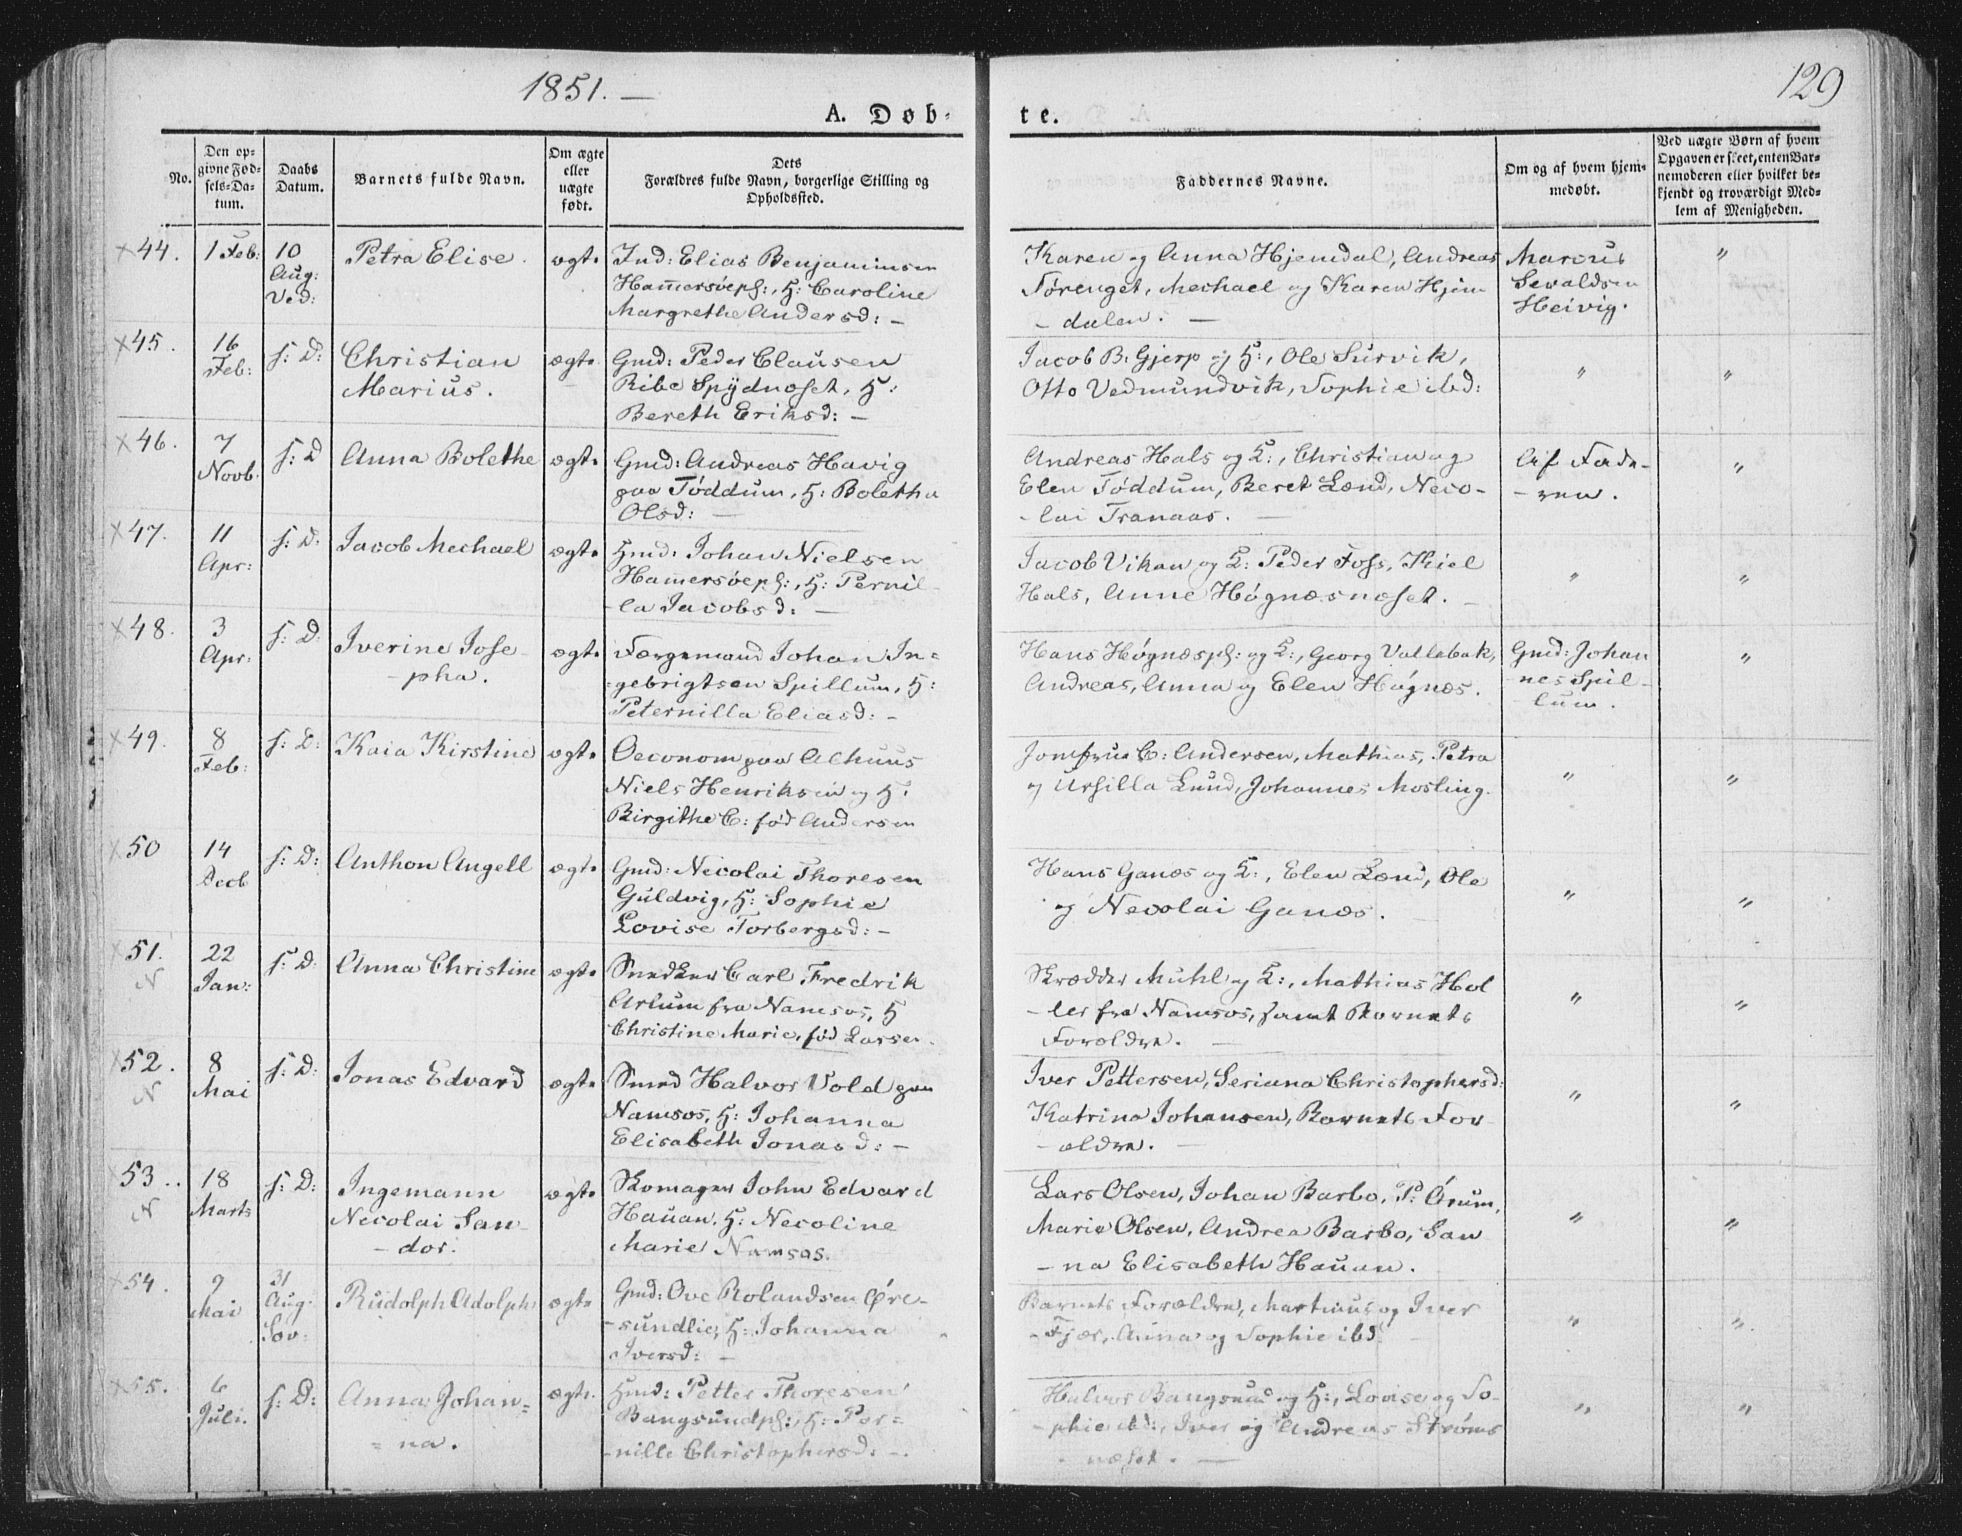 1851. —
129
A. Døb-
te.
No.
Den op-
givne Fød-
sels-Da-
tum.
Daabs
Datum.
Barnets fulde Navn.
Om ægte
eller
uægte
født.
Dets
Forældres fulde Navn, borgerlige Stilling og
Opholdssted.
Faddernes Navne.
Om og af hvem hjem-
medøbt.
Ved uægte Børn af hvem
Opgaven er skeet, enten Bar-
nemoderen eller hvilket be-
kjendt og troværdigt Med-
lem af Menigheden.
×44.
1 Feb:
10
Aug:
Ved:
Petra Elise.
ægte
Ind: Elias Benjaminsen
Ham̄ersøepl:, H: Caroline
Margrethe Andersd: —
Karen og Anna Hjemdal, Andreas
Tørenget, Mechael og Karen Hjem
- dalen. —
Marcus
Sevaldsen
Heivig.
"
×45.
16
Feb:
s: D:
Christian
Marius.
ægte
Gmd: Peder Clausen
Ribe Spydnoset, H:
Bereth Eriksd: —
Jacob B: Gjerp og H:, Ole Survik,
Otto Vedmundvik, Sophie ibd:
"
"
×46.
7
Novb.
s: D
Anna Bolethe
ægte
Gmd: Andreas Havig
paa Føddum, H: Boletha
Olsd: —
Andreas Hals og H:, Christian og
Elen Føddum, Beret Lænd, Neco-
- lai Tranaas. —
Af Fade-
- ren.
"
×47.
11
Apr:
s: D.
Jacob Mechael
ægte
Hmd: Johan Nielsen
Ham̄ersøepl:, H: Pernil
- la Jacobsd: —
Jacob Vikan og H: Peder Foss, Kiel
Hals, Anne Høgnæsnoset. —
"
"
×48.
3
Apr:
s: D.
Iverine Jose-
- pha.
ægte
Færgemand Johan In-
gebrigtsen Spillum, H:
Peternilla Eliasd: -
Hans Høgnæspl: og H:, Georg Vallabak,
Andreas, Anna og Elen Høgnæs.
Gmd: Johan
- nes Spil-
lum.
"
×49.
8
Feb:
s: D:
Kaia Kirstine
ægte
Oeconom paa Alhuus
Niels Henriksen og H:
Birgithe C: fød Andersen
Jomfrue C: Andersen, Mathias, Petra
og Ursilla Lund, Johannes Mosling.
"
"
×50
14
Decb
s: D:
Anthon Angell
ægte
Gmd: Necolai Thoresen
Guldvig, H: Sophie
Lovise Torbergsd: -
Hans Ganæs og H:, Elen Lænd, Ole
og Necolai Ganæs.
"
"
×51.
N
22
Jan:
s: D.
Anna Christine
ægte
Snedker Carl Fredrik
Arlum fra Namsos, H
Christine Marie, fød Larsen.
Skrædder Muhl og H:, Mathias Hol
- ler fra Namsos, samt Barnets
Forældre. —
"
"
×52.
N
8
Mai
s: D:
Jonas Edvard
ægte
Smed Halvor Vold paa
Namsos, H: Johanna
Elisabeth Jonasd: -
Iver Pettersen, Seriana Christophersd:
Katrina Johansen, Barnets For-
- ældre. —
"
"
×53..
N
18
Marts
s: D:
Ingemann
Necolai San-
- dor.
ægte
Skomager John Edvard
Hauan, H: Necoline
Marie Namsos.
Lars Olsen, Johan Barbo, P: Ørum,
Marie Olsen, Andrea Barbo, San
- na Elisabeth Hauan.
"
"
×54.
9
Mai
31
Aug.
Sov:
Rudolph Adolph
ægte
Gmd: Ove Rolandsen Øre-
- sundlie, H: Johanna
Iversd: —
Barnets Forældre, Martinus og Iver
Fjær, Anna og Sophie ibd.
"
"
×55.
6
Juli.
s: D:
Anna Johan=
= na.
ægte.
Hmd: Petter Thoresen
Bangsundpl:, H: Per=
- nille Christophersd: -.
Halvor Bangsund og H:, Lovise og So-
- phie ibd:, Iver og Andreas Strøms
- næset. —
"
"